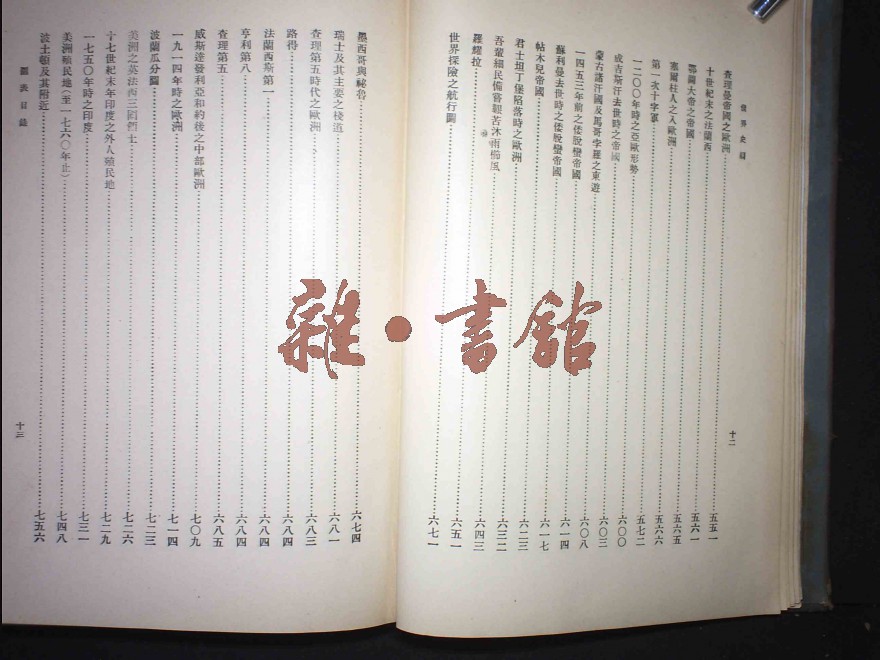 世界史綱
查理曼帝國之歐洲……五五一
十世紀末之法蘭西……五六一
鄂圖大帝之帝國……五六五
塞爾柱人之入歐洲……五六六
第一次十字軍……五七二
一二〇〇年時之亞歐形勢……六〇〇
成吉斯汗去世時之帝國……六〇三
蒙古諸汗國及馬哥孛羅之東遊……六〇八
一四五三年前之倭脫蠻帝國……六一四
蘇利曼去世時之倭脫蠻帝國……六一七
帖木兒帝國……六二三
君士坦丁堡陷落時之歐洲……六三二
吾輩細民備嘗艱苦沐雨櫛風……六四三
羅耀拉……六五一
世界探險之航行圖……六七一
十二
墨西哥與祕魯……六七四
瑞士及其主要之棧道……六八一
查理第五時代之歐洲……六八三
路得……六八四
法蘭西斯第一……六八四
亨利第八……六八四
查理第五……六八五
威斯達發利亞和約後之中部歐洲……七〇九
一九一四年時之歐洲……七一四
波蘭瓜分圖……七二三
美洲之英法西三國領土……七二六
十七世紀末年印度之外人殖民地……七二九
一七五〇年時之印度……七三一
美洲殖民地(至一七六〇年止)……七四八
波士頓及其附近……七五六
圖表目錄
十三
雜·書館